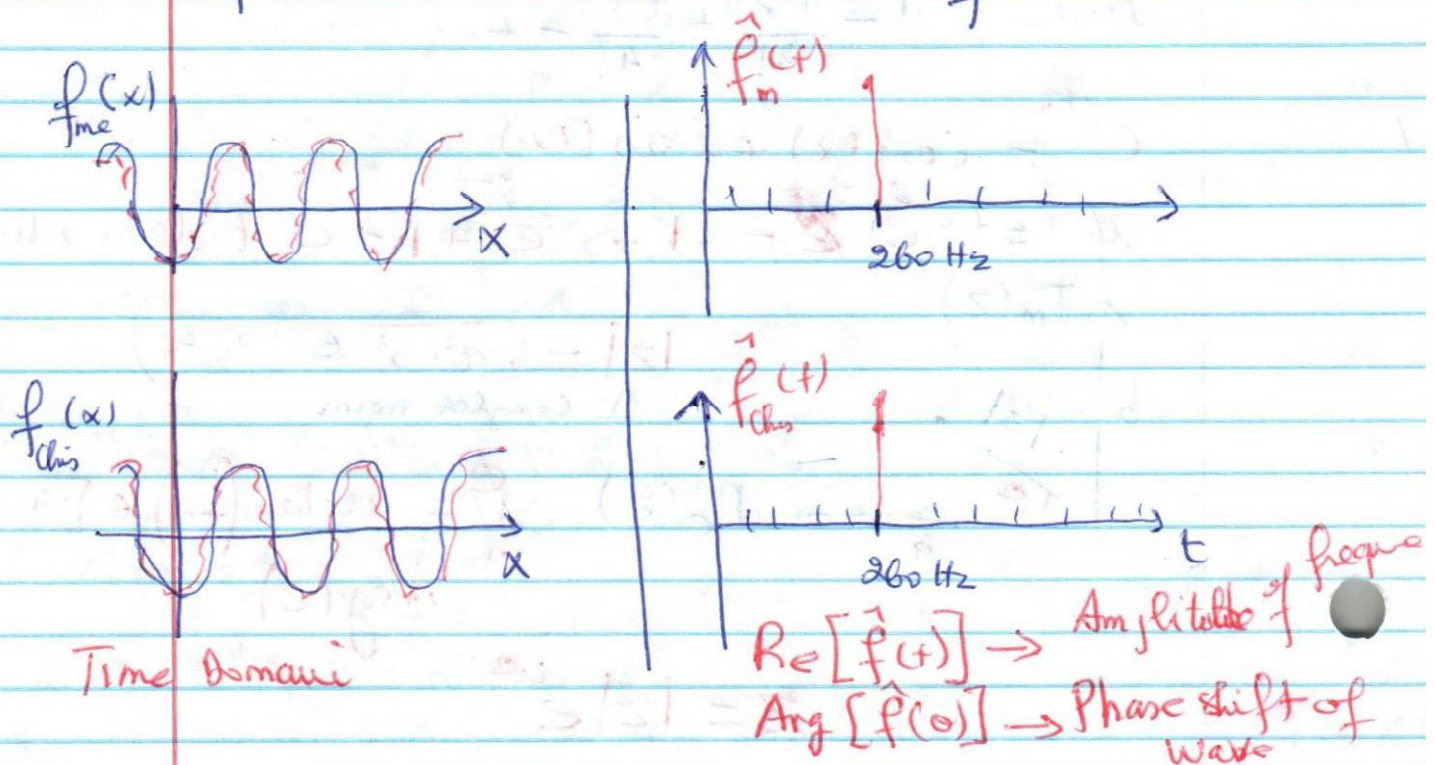 f_me (x)
X
f̂_m (f)
260 Hz
f_Chis (x)
X
f̂_Chis (t)
260 Hz
t
Time Domain
Re [f̂(t)] → Amplitude of freque
Arg [f̂(o)] → Phase shift of
wave